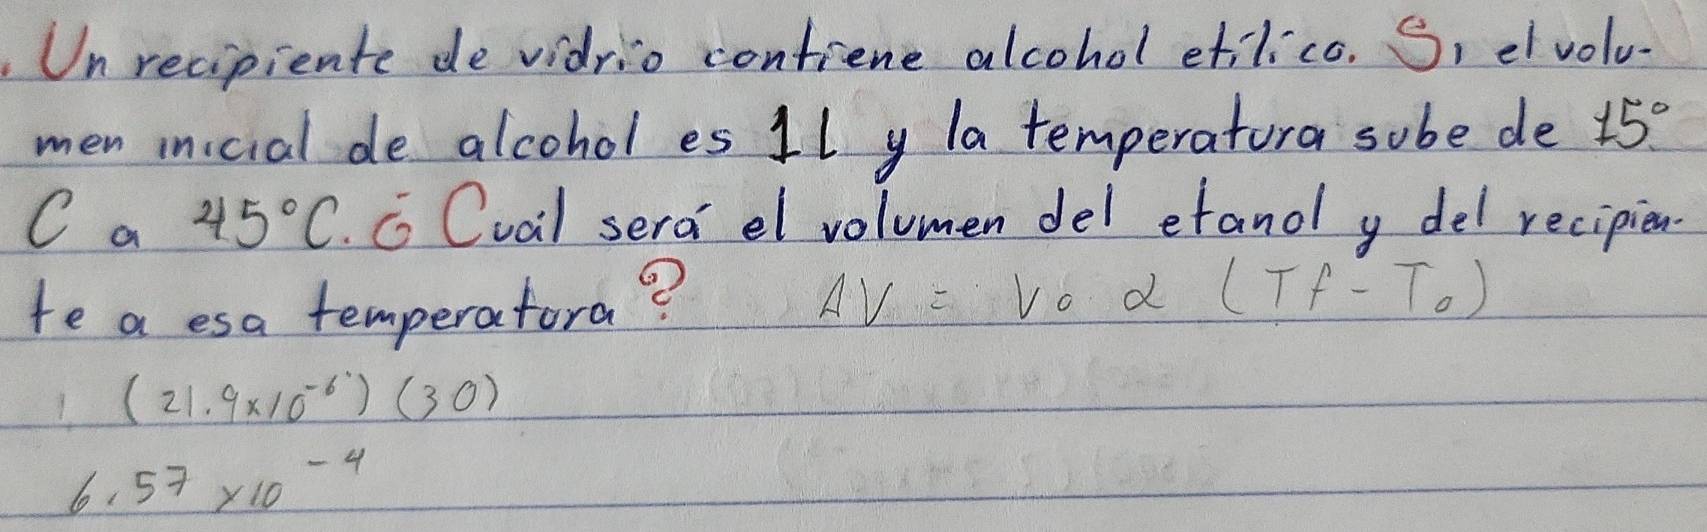 . Un recipiente de vidrio contiene alcohol etílico. Si el volu-
men inicial de alcohol es 1L y la temperatura sube de 15°
C a 45°C. ¿Cuál será el volumen del etanol y del recipien-
te a esa temperatura? ΔV = V₀ α (Tf - T₀)
1 (21.9x10⁻⁶) (30)
6.57 x10⁻⁴